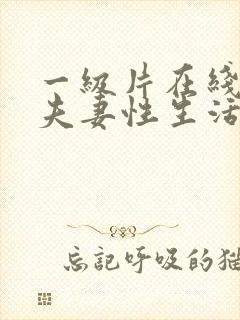 一级片在线
夫妻性生活
忘记呼吸的猫